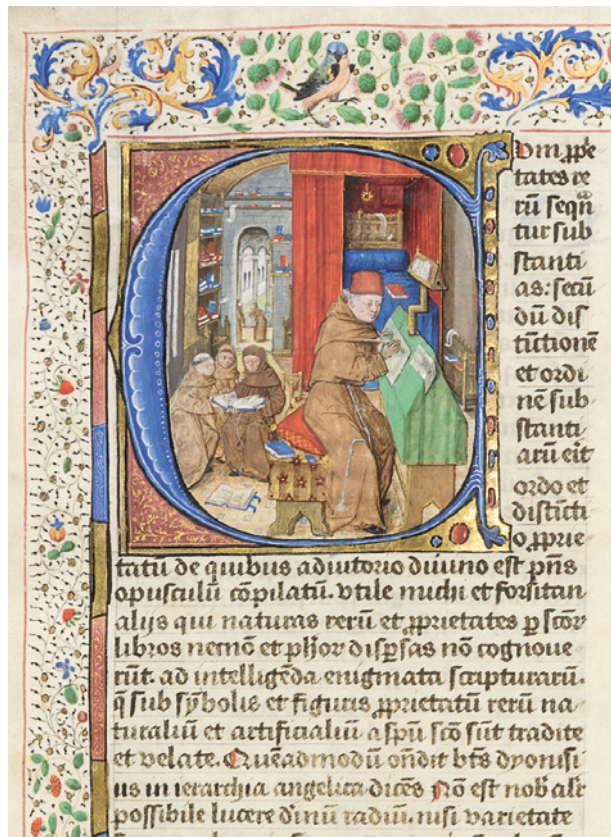 Um ꝓpͥe
tates re
rū seqn̄
tur sub
stanti
as: secū
dū dis
tictionē
et ordi
nē sub
stanti
arū erit
ordo et
distīcti
o ꝓprie
tatū de quibus adiutorio diuino est p̄ns
opusculū cōpilatū. vtile michi et forsitan
alijs qui naturas rerū et ꝓprietates ꝑ scōꝝ
libros necnō et ph̄oꝝ disꝑsas nō cognoue
rūt. ad intelligēda enigmata scripturarū.
q̄ sub sȳbolis et figuris ꝓprietatū rerū na
turaliū et artificialiū a sp̄u scō sūt tradite
et velate. Quēadmodū on̄dit bt̄s dyonisi
us in ierarchia angelica dicēs Nō est nob̄ alr̄
possibile lucere diuinū radiū. nisi varietate